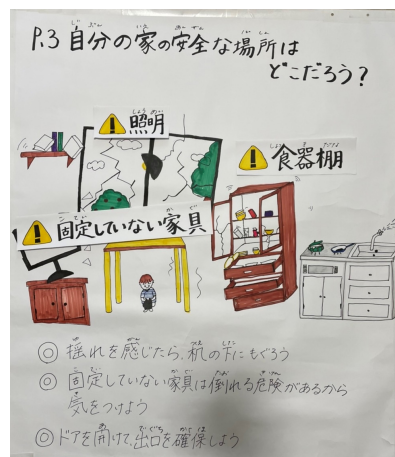 P.3 自分の家の安全な場所は
どこだろう?
照明
食器棚
固定していない家具
◎ 揺れを感じたら、机の下にもぐろう
◎ 固定していない家具は倒れる危険があるから
気をつけよう
◎ ドアを開けて、出口を確保しよう